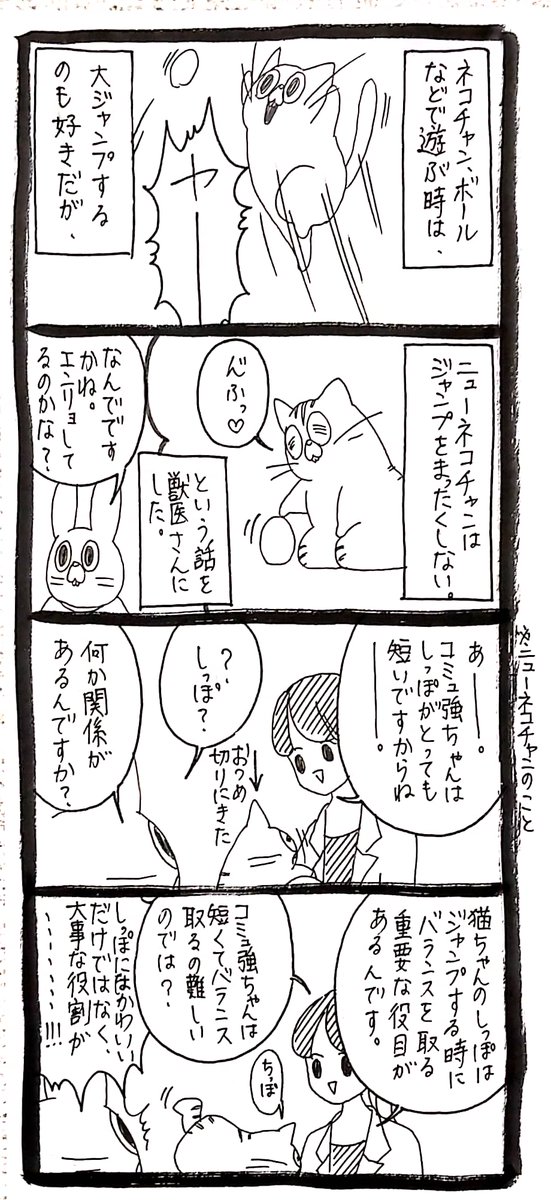 ネコチャン、ボール
などで遊ぶ時は、
ヤーーー
大ジャンプする
のも好きだが、
ニューネコチャンは
ジャンプをまったくしない。
んふっ♡
という話を
獣医さんに
した。
なんでです
かね。
エンリョして
るのかな？
あーーー。
コミュ強ちゃんは
しっぽがとっても
短いですからね
ーーー。
※ニューネコチャンのこと
？
しっぽ？
おつめ
切りにきた
何か関係が
あるんですか？
猫ちゃんのしっぽは
ジャンプする時に
バランスを取る
重要な役目が
あるんです。
コミュ強ちゃんは
短くてバランス
取るの難しい
のでは？
ちっぽ
しっぽにはかわいい
だけではなく、
大事な役割が
・・・・・・・!!!